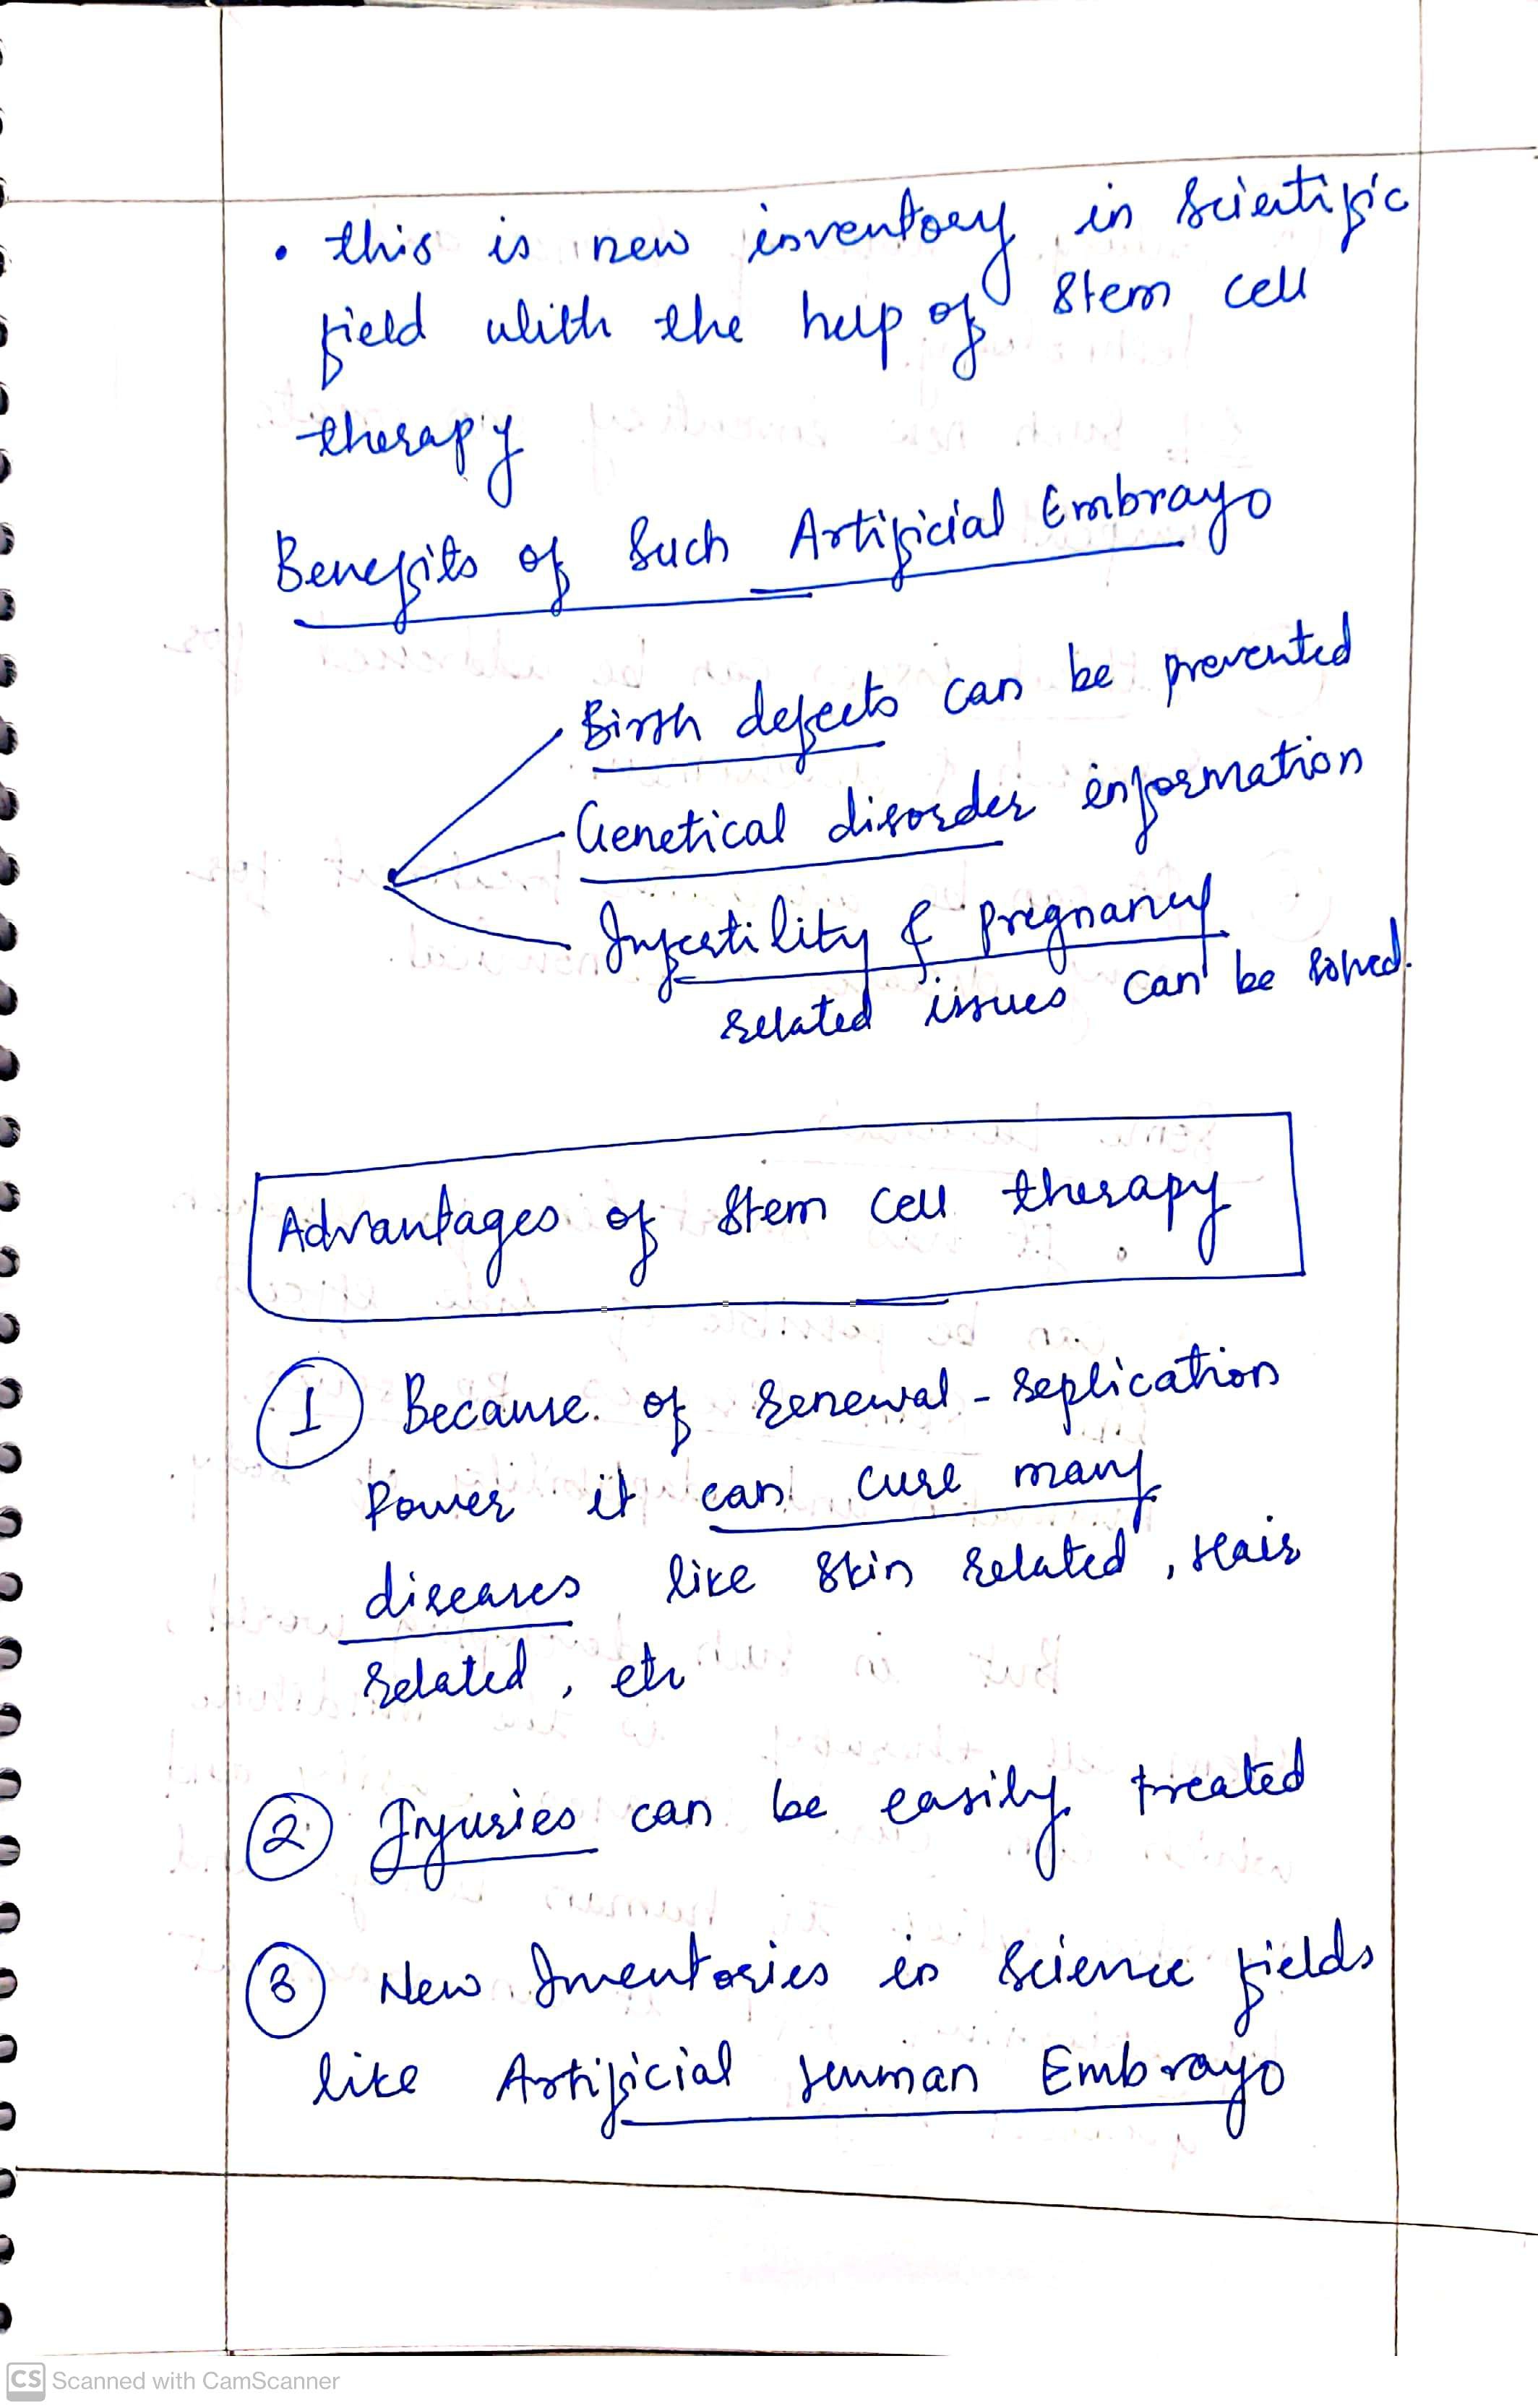 • this is new inventory in scientific
field with the help of Stem cell
therapy
Benefits of Such Artificial Embrayo
Birth defects can be prevented
Genetical disorder information
Infertility & pregnancy
related issues can be solved.
Advantages of Stem cell therapy
① Because of renewal - replication
Power it can cure many
diseases like skin related, Hair
related, etc
② Injuries can be easily treated
③ New Inventories in Science fields
like Artificial human Embrayo
CS Scanned with CamScanner